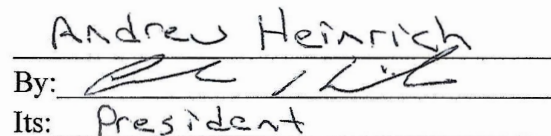 Andrew Heinrich
By:
Its: President